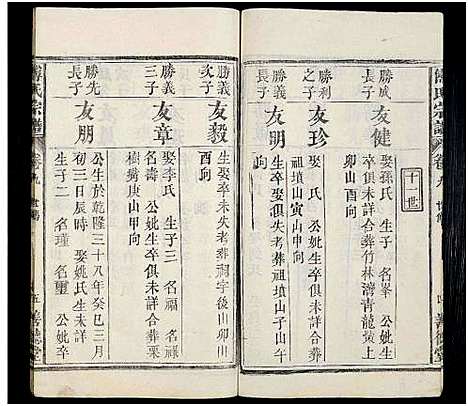 氏宗譜
卷九 世系
四 善德堂
十一世
勝成
長子
友健
娶孫氏 生子一 名峯 公妣生
卒俱未詳合葬竹林灣青龍黨上
卯山酉向
勝利
之子
友珍
娶 氏 公妣生卒俱未詳合葬
祖墳山寅山申向
勝義
長子
友明
娶 氏 生卒俱未考葬祖墳山子山午
向
勝義
次子
友毅
生娶卒未失考葬祠宇後山卯山
酉向
勝義
三子
友章
娶李氏 生子二 名福 名祿
名壽 公妣生卒俱未詳合葬栗
樹灣庚山甲向
勝先
長子
友朋
公生於乾隆三十八年癸巳三月
初三日辰時 娶姚氏生未詳
生子二 名瑾 名璽 公妣卒
氏宗譜
卷九 世系
五 善德堂